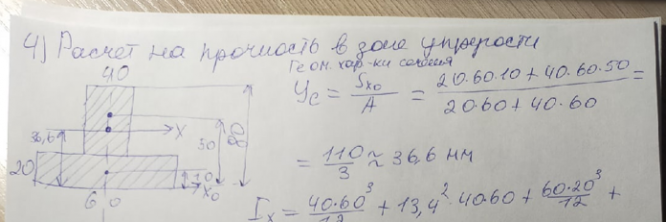 4) Расчет на прочность в зоне упругости
Геом. хар-ки сечения
40
y_c = S_x₀ / A = (20·60·10 + 40·60·50) / (20·60 + 40·60) =
36,6
X
30
80
= 110/3 ≈ 36,6 мм
20
10
x₀
60
I_x = 40·60³/12 + 13,4²·40·60 + 60·20³/12 +